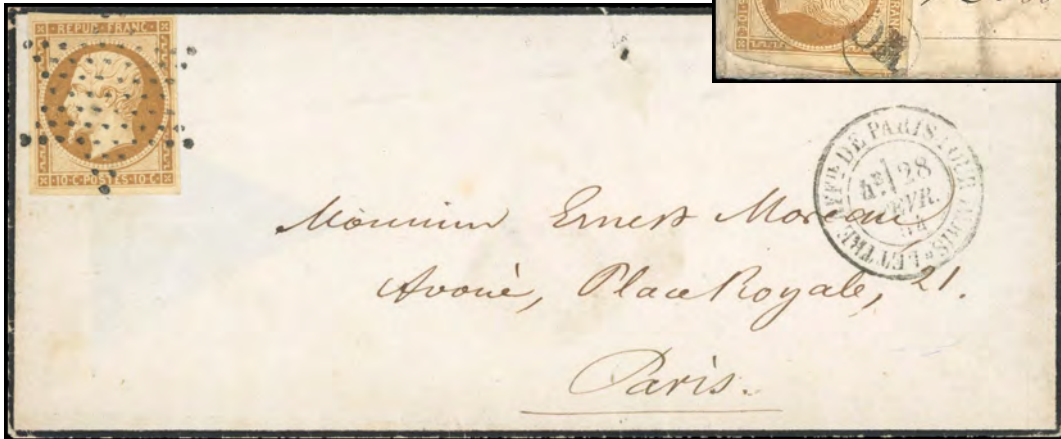 REPUB-FRANC-
10-C-POSTES-10-C-
DE PARIS POUR PARIS LETTRE AFFR.
28
FEVR.
54
Monsieur Ernest Moreau
Avoué, Place Royale, 21.
Paris.